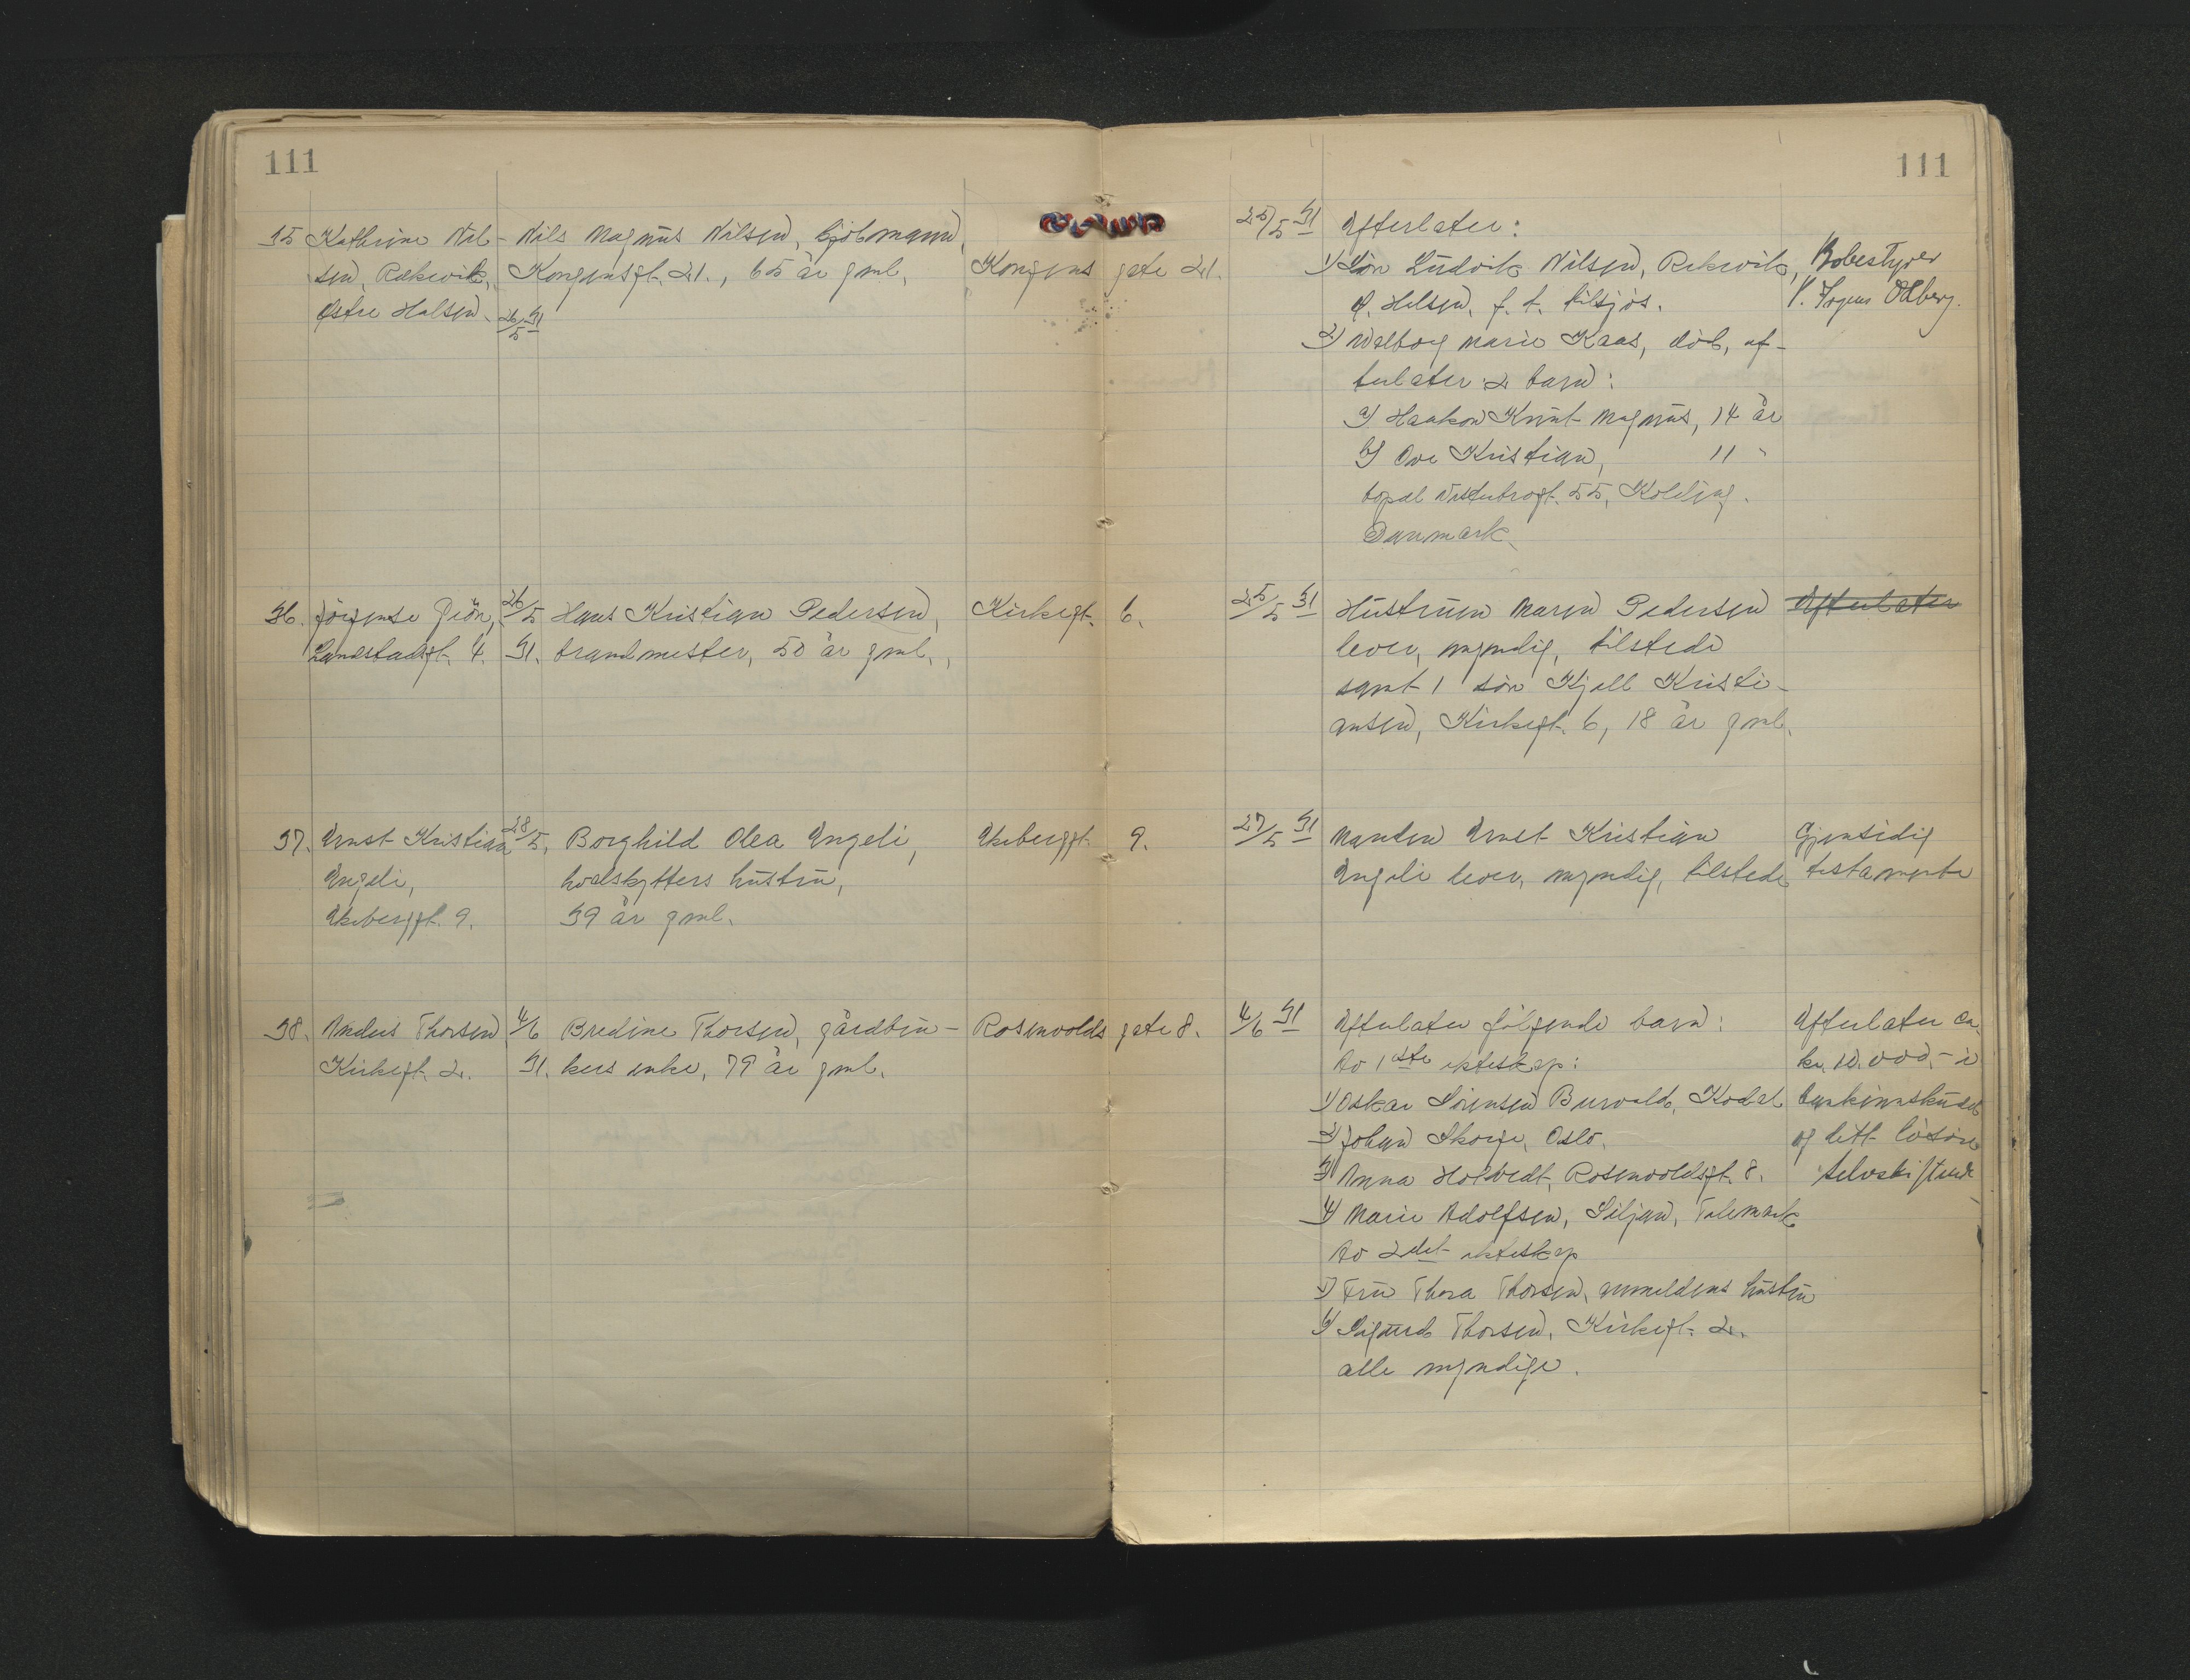 111
111
35 Katrine Nil- Nils Magnus Nilsen, sjømann, 25/5 31 Efterlater:
sen, Rekevik, Kongensgt. 21., 65 år gml. Kongens gate 21. 1) Søn Ludvik Nilsen, Rekevik, Bobestyrer
Østre Halsen. 26/5 31 Ø. Halsen, f. t. tilsjøs. V. Ohlberg.
2) Valborg Marie Kaas, død, ef-
terlater 2 barn:
a) Haakon Knut Magnus, 14 år
b) Ove Kristian, 11 "
bopæl Vesterbrogt. 55, Kolding.
Danmark.
36. Jørgense Grøn, 26/5 Hans Kristian Pedersen, Kirkegt. 6. 25/5 31 Hustruen Maren Pedersen Efterlater
Landstadsgt. 4. 31. brandmester, 50 år gml., lever, myndig, tilstede
samt 1 søn Kjell Kristi-
ansen, Kirkegt. 6, 18 år gml.
37. Ernst Kristian 28/5, Borghild Olea Engeli, Ekeberggt. 9. 27/5 31 Manden Ernst Kristian Gjensidig
Engeli, hvalskytters hustru, Engeli lever, myndig, tilstede testamente
Ekeberggt. 9. 39 år gml.
38. Anders Thorsen 4/6 Bredine Thorsen, gårdbru- Rosenvolds gate 8. 4/6 31 Efterlater følgende barn: Efterlater ca.
Kirkegt. 2. 31. kers enke, 79 år gml. Av 1ste ekteskap: kr. 10.000.- i
1) Oskar Sørensen Buevold, Kodal bankinnskudd
2) Johan Skorge, Oslo. og litt løsøre
3) Anna Holtvedt, Rosenvoldsgt. 8. selvskiftende
4) Marie Adolfsen, Siljan, Telemark
Av 2det ekteskap
5) Fru Thora Thorsen, anmeldens hustru
6) Sigurd Thorsen, Kirkegt. 2.
alle myndige.